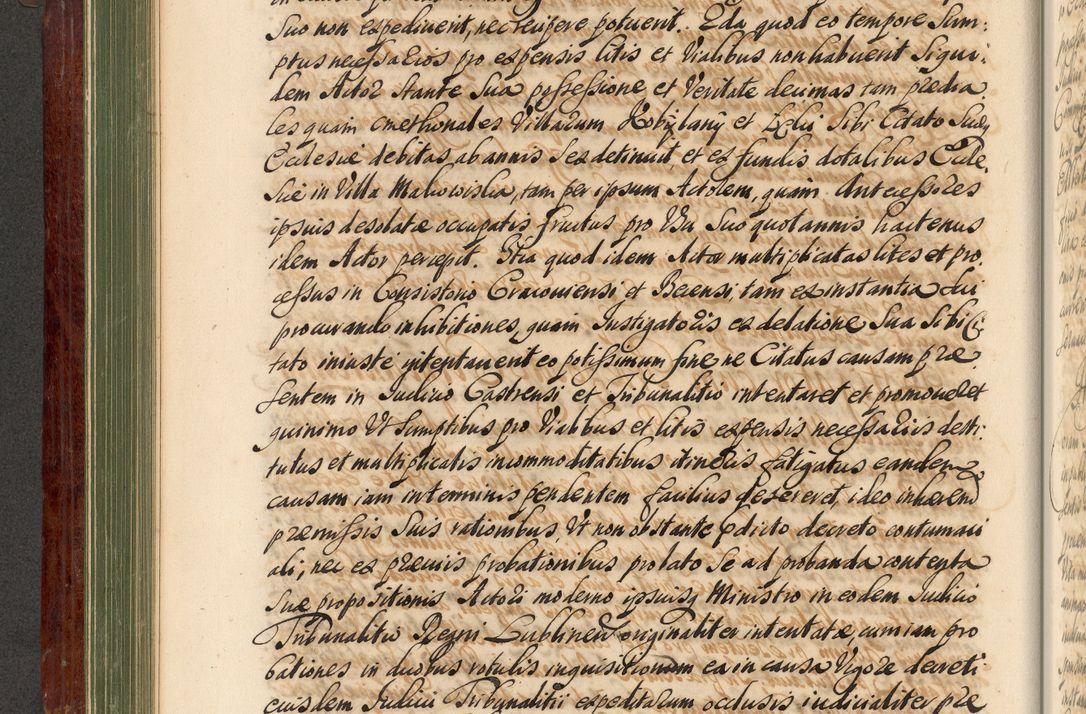 Suo non expediuerit, nec recipere potuerit. 2da quod eo tempore Sum:
ptus necessarios pro expensis litis et Vialibus non habuerit Siqui:
dem Actor Stante Sua possessione et Veritate decimas tam prædia
les quam cmethonales Villarum Kobylany et Ziglin Sibi Citato Suæq
Ecclesiæ debitas, ab annis Sex detinuit, et ex fundis dotalibus Eccle
siæ in Villa Maliowiska, tam per ipsum Actorem, quam Antecessores
ipsius desolatæ occupatis fructus pro Usu Suo quotannis hactenus
idem Actor percepit. 3tia quod idem Actor multiplicatas lites et pro
cessus in Consistorio Cracouiensi et Becensi tam ex instantia Sui
procurando inhibitiones, quam Instigatoris ex delatione Sua Sibi Ci
tato iniuste intentauerit eo potissimum fine, ne Citatus causam præ
sentem in Iudicio Castrensi et Tribunalitio intentaret et promoueret
quinimo Ut Sumptibus pro Vialibus et litis expensis necessariis desti:
tutus et multiplicatis incommoditatibus itineris fatigatus eandem
causam iam in terminis pendentem facilius desereret, ideo inhærend
præmissis Suis rationibus, Ut non obstante Edicto decreto contumaci
ali, nec ex præuiis probationibus prolato Se ad probanda contenta
Suæ propositionis Actori moderno ipsiusq Ministro in eodem Iudicio
Tribunalitio Regni Lublinen originaliter intentatæ, cum iam pro
bationes in duobus rotulis inquisitionum ea in causa Vigore decreti
eiusdem Iudicii Tribunalitii expeditarum oclusis iudicialiter præ